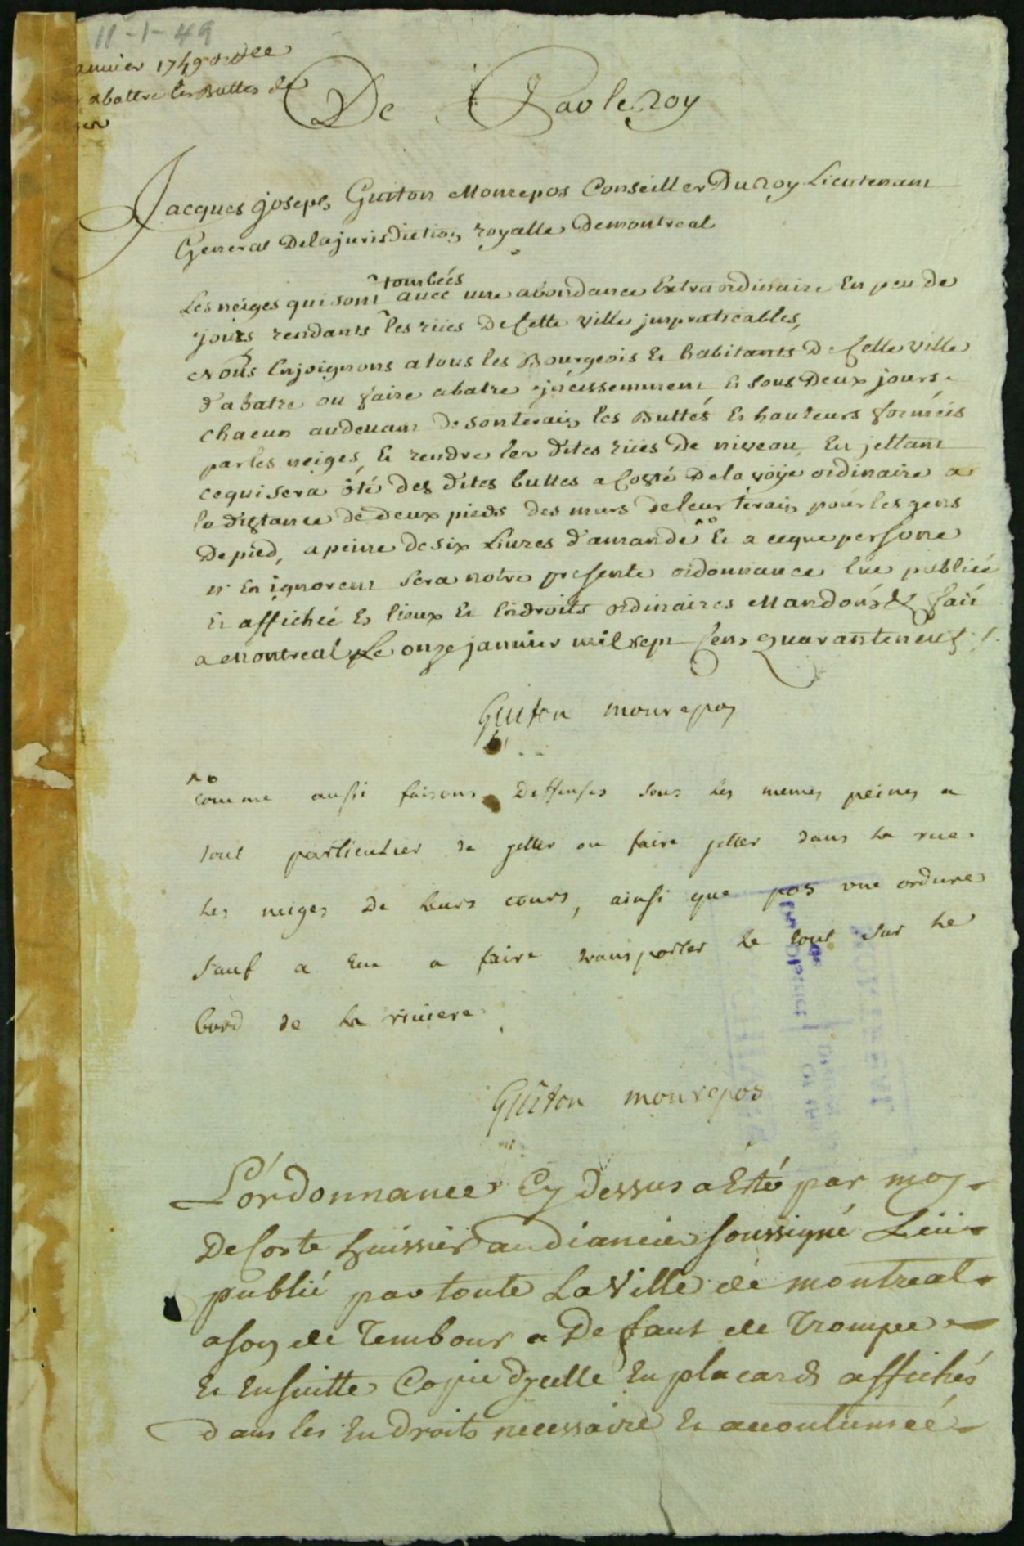 11-1-49
anvier 1749 ordce
abattre les Buttes de
De Par le Roy
Jacques joseph Guiton Monrepos Conseiller Du Roy Lieutenant
General De la jurisdiction royalle De montreal
tombées
Les neiges qui sont avec une abondance Extraordinaire En peu de
jours rendants les rües De Cette ville jmpraticables,
Nous Enjoignons a tous les Bourgeois Et habitants De Cette ville
d'abatre ou faire abatre jncessemment Et sous Deux jours
chacun audevant De son terain les Buttes Et hauteurs formées
par les neiges, Et rendre les dites rües De niveau, En jettant
ce qui sera ôté des dites buttes a Costé De la voÿe ordinaire a
la distance de deux pieds des murs de leur terain pour les gens
De pied, a peine de six Livres d'amande Et a ce que persone
n'En ignorent sera notre presente ordonnance lüe publiée
Et affichée Es lieux Et Endroits ordinaires Mandons &c fait
a montreal Le onze janvier mil sept Cens quarante neuf ./.
Guiton monrepos
comme aussi faisons Deffenses sous les memes peines a
tout particulier de jetter ou faire jetter dans la rue
les neiges De leurs cours, ainsi que pas une ordure
sauf a Eux a faire transporter le tout sur le
bord de la riviere
Guiton monrepos
L'ordonnance Cy Dessus a Esté par moy
De Coste huissier audiancier soussigné Lüe
publié par toute La Ville de montreal
a son de Tembour a Defaut de Trompe
Et Ensuitte Copie D'jcelle En placards affichés
dans les Endroits necessaire Et acoutumée